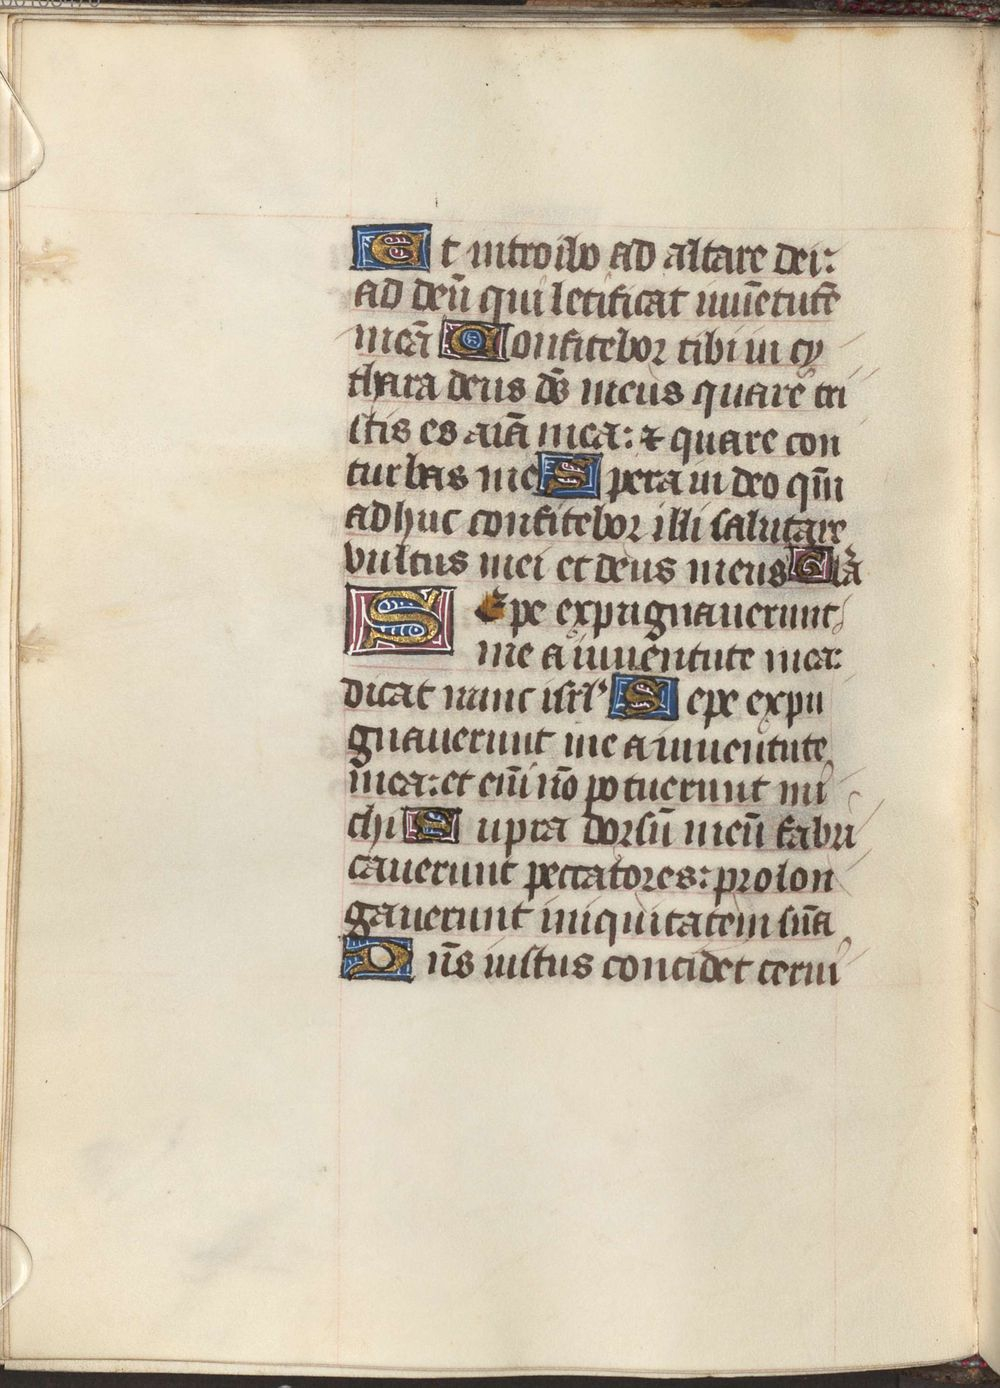 Et introibo ad altare dei:
ad deū qui letificat iuuētutē
meā Confitebor tibi in cy
thara deus ds̄ meus quare tri
stis es aīa mea: ⁊ quare con
turbas me Spera in deo qm̄
adhuc confitebor illi salutare
vultus mei et deus meus Glā
Sepe expugnauerunt
me a iuuentute mea:
dicat nunc isrl̄ Sepe expu
gnauerunt me a iuuentute
mea: et eni̅ nō potuerunt mi
chi Supra dorsū meū fabri
cauerunt peccatores: prolon
gauerunt iniquitatem suā
Dn̄s iustus concidet cerui